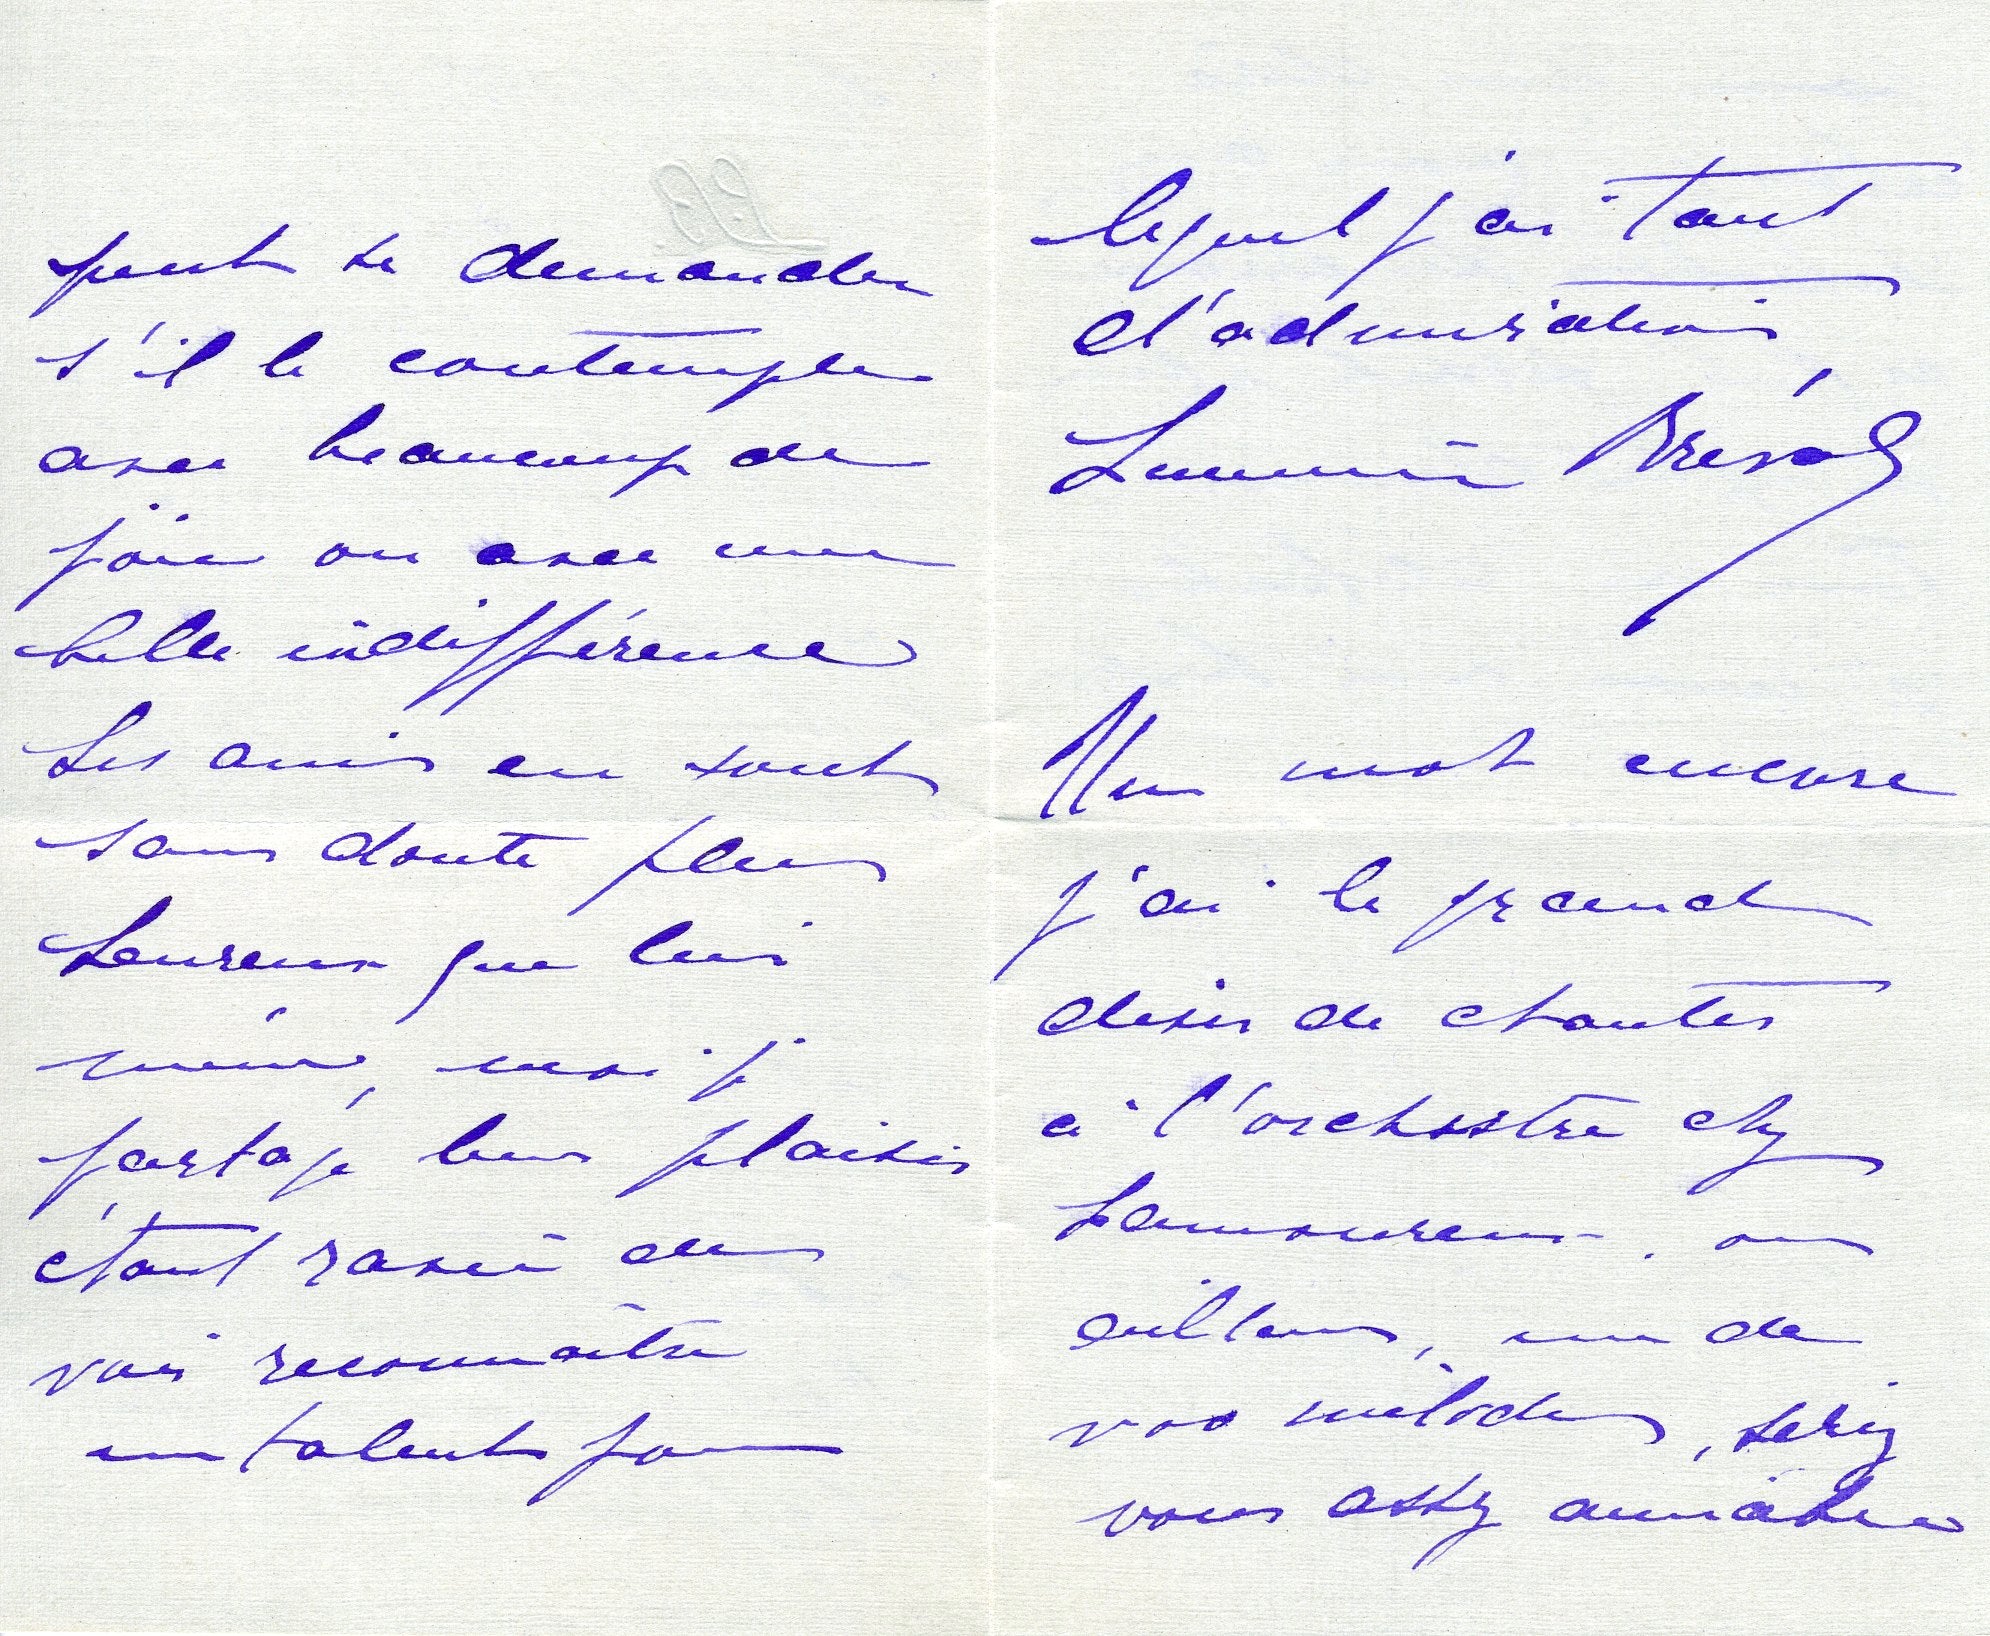 peut se demander
s'il le contemple
avec beaucoup de
joie ou avec une
belle indifférence
Les amis en sont
sans doute plus
heureux que lui
même, moi j'
partage leur plaisir
étant ravie de
voir reconnaître
un talent pour
lequel j'ai tant
d'admiration
Lucienne Bréval
Un mot encore
j'ai le grand
désir de chanter
à l'orchestre chez
Lamoureux. ou
ailleurs, une de
vos mélodies, seriez
vous assez aimable